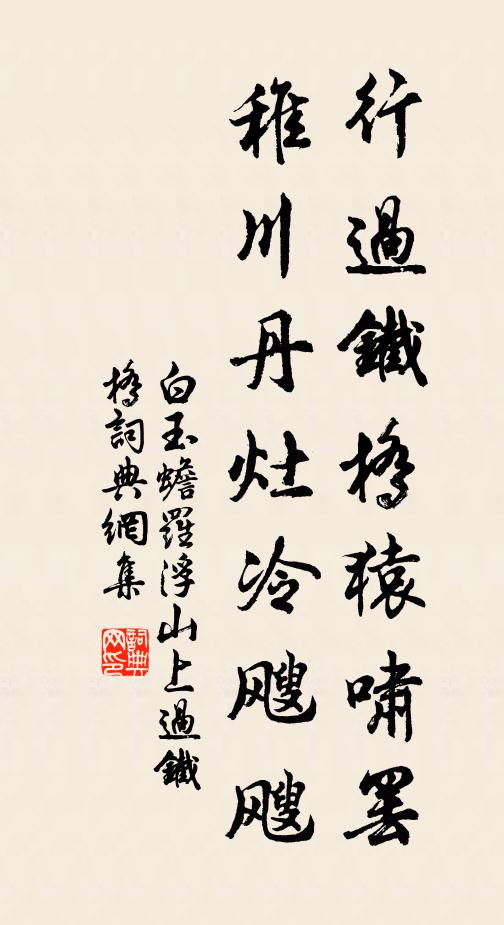 行過鐵橋猿嘯罷
稚川丹灶冷颼颼
白玉蟾羅浮山上過鐵
橋詞典網集
詞典网印